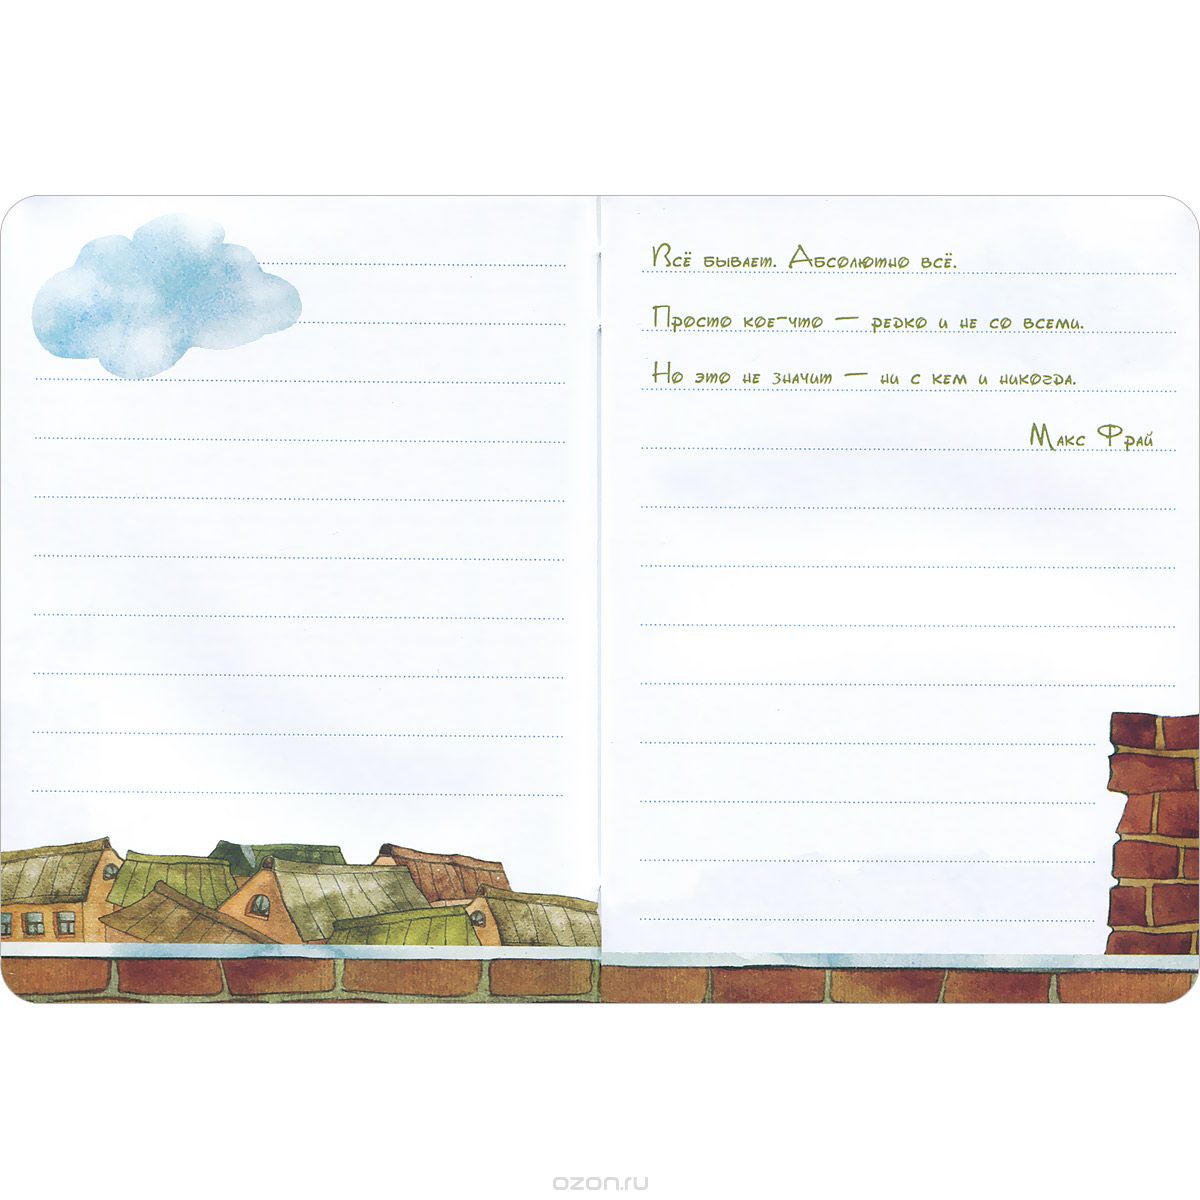 Всё бывает. Абсолютно всё.
Просто кое-что — редко и не со всеми.
Но это не значит — ни с кем и никогда.
Макс Фрай
ozon.ru